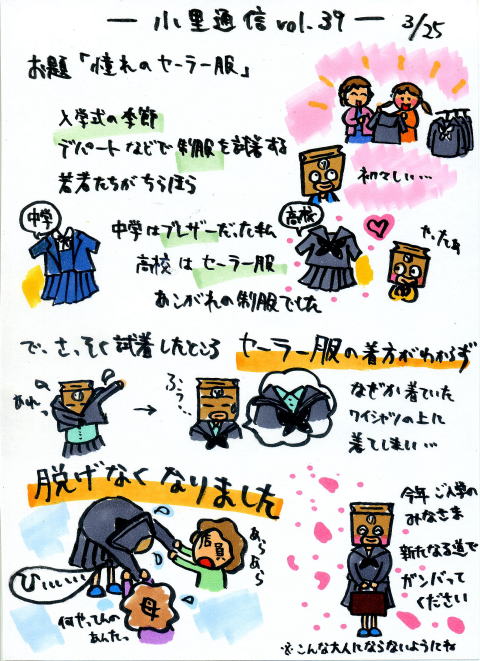 小里通信 vol.39
3/25
お題「憧れのセーラー服」
入学式の季節
デパートなどで制服を試着する
若者たちがちらほら
初々しい…
中学
中学はブレザーだった私
高校はセーラー服
あこがれの制服でした
高校
やったぁ
で、さっそく試着したところ セーラー服の着方がわからず
あれっ
→
ふぅ…
なぜか着ていた
ワイシャツの上に
着てしまい…
脱げなくなりました
店員
あらあら
ひぃぃぃぃ
母
何やってんの
あんたっ
今年ご入学の
みなさま
新たなる道で
ガンバって
ください
※こんな大人にならないようにね